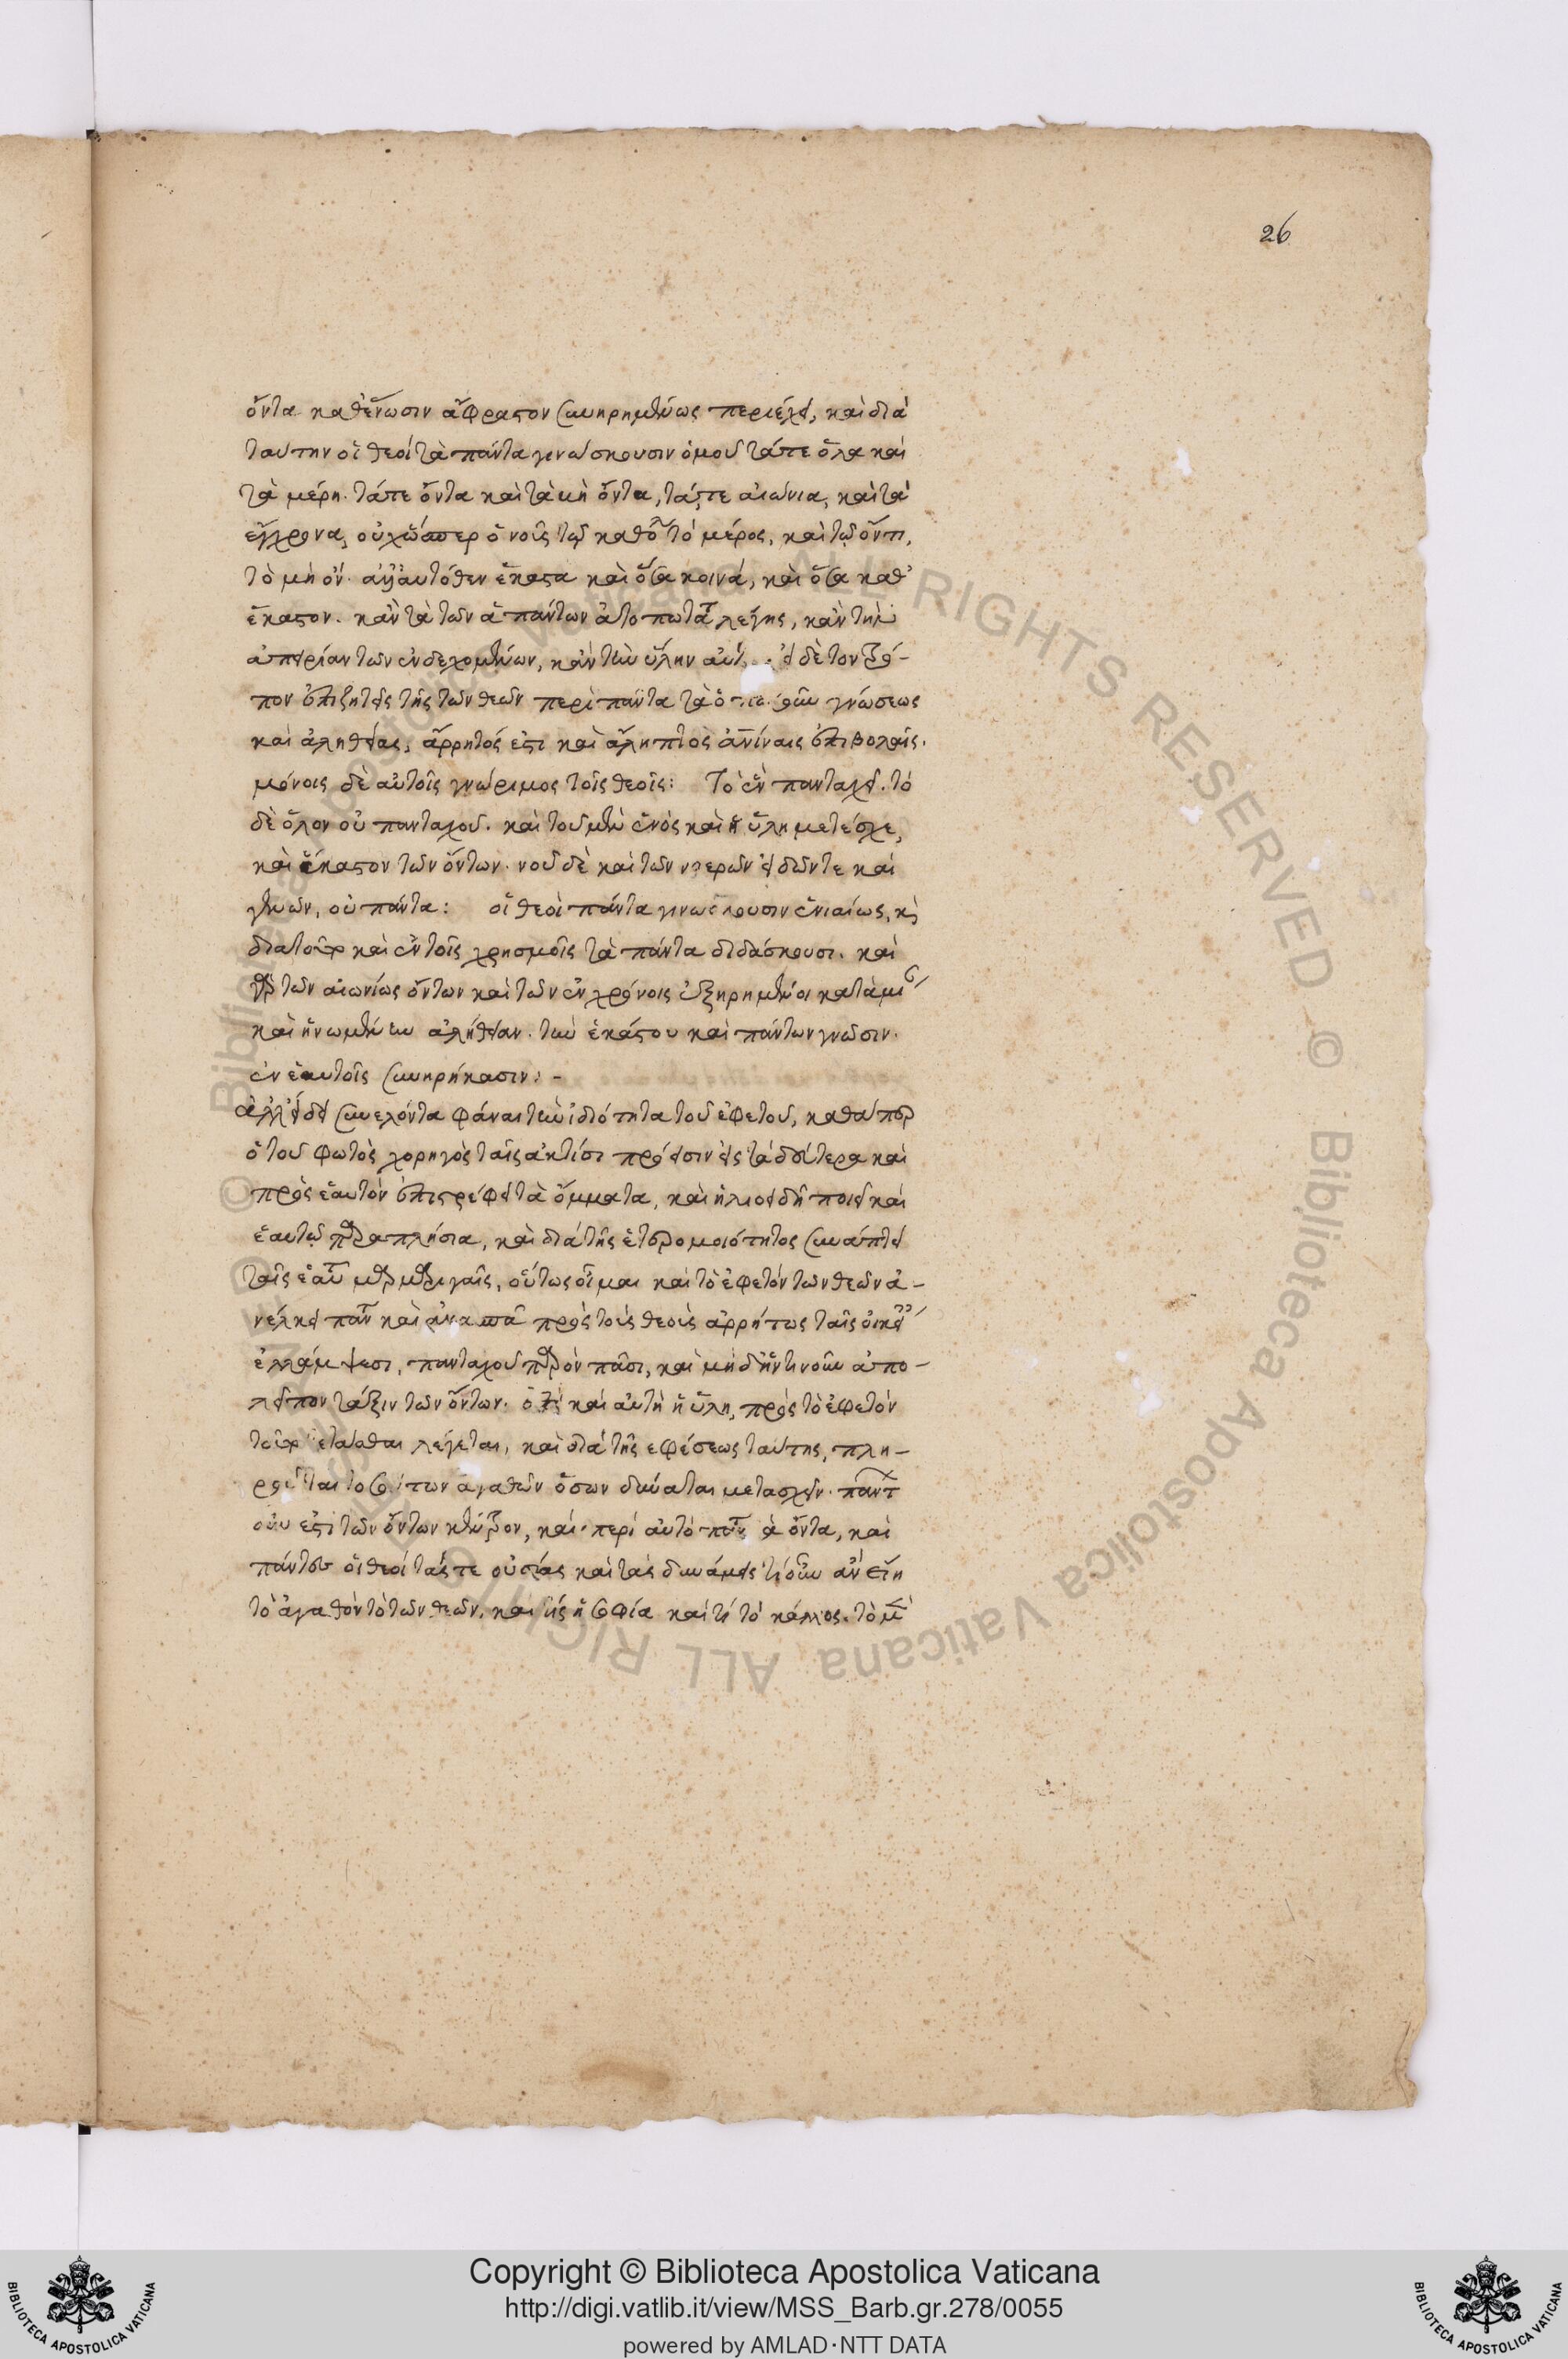 26
ὄντα καθ' ἕνωσιν ἄφραστον συνῃρημένως περιέχει, καὶ διὰ
ταύτην οἱ θεοὶ τὰ πάντα γινώσκουσιν ὁμοῦ τάτε ὅλα καὶ
τὰ μέρη. τάτε ὄντα καὶ τὰ μὴ ὄντα, τάτε αἰώνια, καὶ τὰ
ἔγχρονα, οὐχ ὥσπερ ὁ νοῦς τῷ καθόλου τὸ μέρος, καὶ τῷ ὄντι,
τὸ μὴ ὄν. ἀλλ' αὐτόθεν ἕκαστα καὶ ὅσα κοινά, καὶ ὅσα καθ'
ἕκαστον. κἂν τὰ τῶν ἁπάντων ἀτοπώτατα λέγῃς, κἂν τὴν
ἀπειρίαν τῶν ἐνδεχομένων, κἂν τὴν ὕλην εἰ δὲ τὸν τρό-
πον ἐπιζητεῖς τῆς τῶν θεῶν περὶ πάντα τὰ γνώσεως
καὶ ἀληθείας, ἄρρητός ἐστι καὶ ἄληπτος ἀνθρωπίναις ἐπιβολαῖς.
μόνοις δὲ αὐτοῖς γνώριμος τοῖς θεοῖς: Τὸ ἓν πανταχοῦ. τὸ
δὲ ὅλον οὐ πανταχοῦ. καὶ τοῦ μὲν ἑνὸς καὶ ἡ ὕλη μετέσχε,
καὶ ἕκαστον τῶν ὄντων. νοῦ δὲ καὶ τῶν νοερῶν εἰδῶν τε καὶ
γενῶν, οὐ πάντα: οἱ θεοὶ πάντα γινώσκουσιν ἑνιαίως, καὶ
διατοῦτο καὶ ἐν τοῖς χρησμοῖς τὰ πάντα διδάσκουσι. καὶ
γὰρ τῶν αἰωνίως ὄντων καὶ τῶν ἐν χρόνοις ἐξῃρημένοι κατὰ μίαν
καὶ ἡνωμένην ἀλήθειαν. τὴν ἑκάστου καὶ πάντων γνῶσιν.
ἐν ἑαυτοῖς συνῃρήκασιν:-
ἀλλ' εἰ δεῖ συνελόντα φάναι τὴν ἰδιότητα τοῦ ἐφετοῦ, καθάπερ
ὁ τοῦ φωτὸς χορηγὸς ταῖς ἀκτῖσι πρόεισιν εἰς τὰ δεύτερα καὶ
πρὸς ἑαυτὸν ἐπιστρέφει τὰ ὄμματα, καὶ ἡλιοειδῆ ποιεῖ καὶ
ἑαυτῷ παραπλήσια, καὶ διὰ τῆς ἑτερομοιότητος συνάπτει
ταῖς ἑαυτοῦ μαρμαρυγαῖς, οὕτως οἶμαι καὶ τὸ ἐφετὸν τῶν θεῶν ἀ-
νέλκει πάντα καὶ ἀνασπᾷ πρὸς τοὺς θεοὺς ἀρρήτως ταῖς οἰκείαις
ἐλλάμψεσι, πανταχοῦ παρὸν πᾶσι, καὶ μηδ' ἥντιν οὖν ἀπο-
λεῖπον τάξιν τῶν ὄντων. ὅπου καὶ αὐτὴ ἡ ὕλη, πρὸς τὸ ἐφετὸν
τοῦτο τετάσθαι λέγεται, καὶ διὰ τῆς ἐφέσεως ταύτης, πλη-
ροῦται τοσούτων ἀγαθῶν ὅσων δύναται μετασχεῖν. πάντων
οὖν ἐστι τῶν ὄντων κέντρον, καὶ περὶ αὐτὸ πάντα τὰ ὄντα, καὶ
πάντες οἱ θεοὶ τάς τε οὐσίας καὶ τὰς δυνάμεις τί οὖν ἂν εἴη
τὸ ἀγαθὸν τὸ τῶν θεῶν, καὶ τίς ἡ σοφία καὶ τί τὸ κάλλος. τὸ μὲν
Copyright © Biblioteca Apostolica Vaticana
http://digi.vatlib.it/view/MSS_Barb.gr.278/0055
powered by AMLAD·NTT DATA